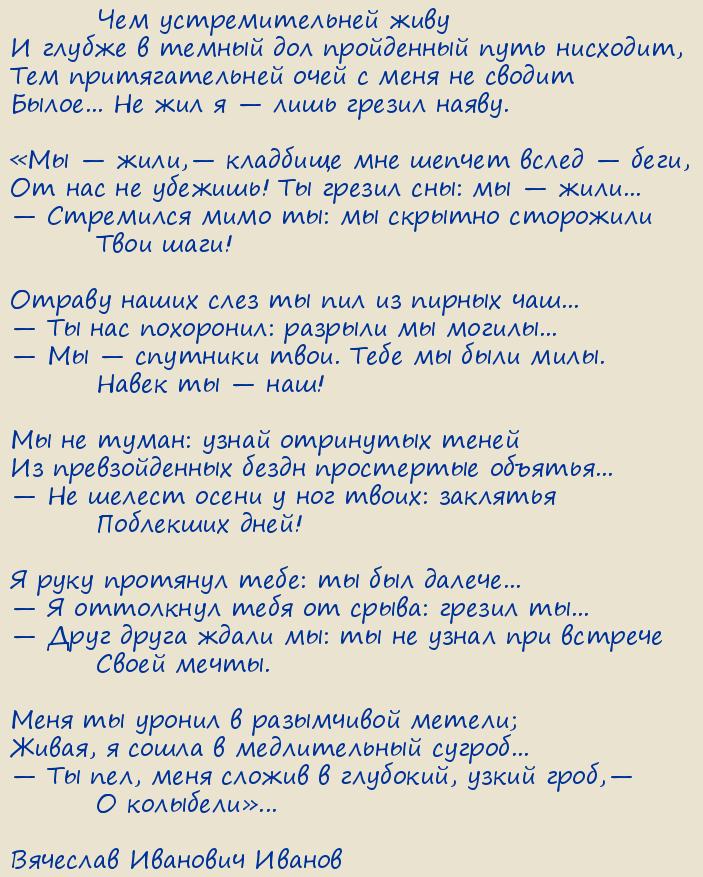 Чем устремительней живу
И глубже в темный дол пройденный путь нисходит,
Тем притягательней очей с меня не сводит
Былое... Не жил я — лишь грезил наяву.

«Мы — жили,— кладбище мне шепчет вслед — беги,
От нас не убежишь! Ты грезил сны: мы — жили...
— Стремился мимо ты: мы скрытно сторожили
Твои шаги!

Отраву наших слез ты пил из пирных чаш...
— Ты нас похоронил: разрыли мы могилы...
— Мы — спутники твои. Тебе мы были милы.
Навек ты — наш!

Мы не туман: узнай отринутых теней
Из превзойденных бездн простертые объятья...
— Не шелест осени у ног твоих: заклятья
Поблекших дней!

Я руку протянул тебе: ты был далече...
— Я оттолкнул тебя от срыва: грезил ты...
— Друг друга ждали мы: ты не узнал при встрече
Своей мечты.

Меня ты уронил в разымчивой метели;
Живая, я сошла в медлительный сугроб...
— Ты пел, меня сложив в глубокий, узкий гроб,—
О колыбели»...

Вячеслав Иванович Иванов